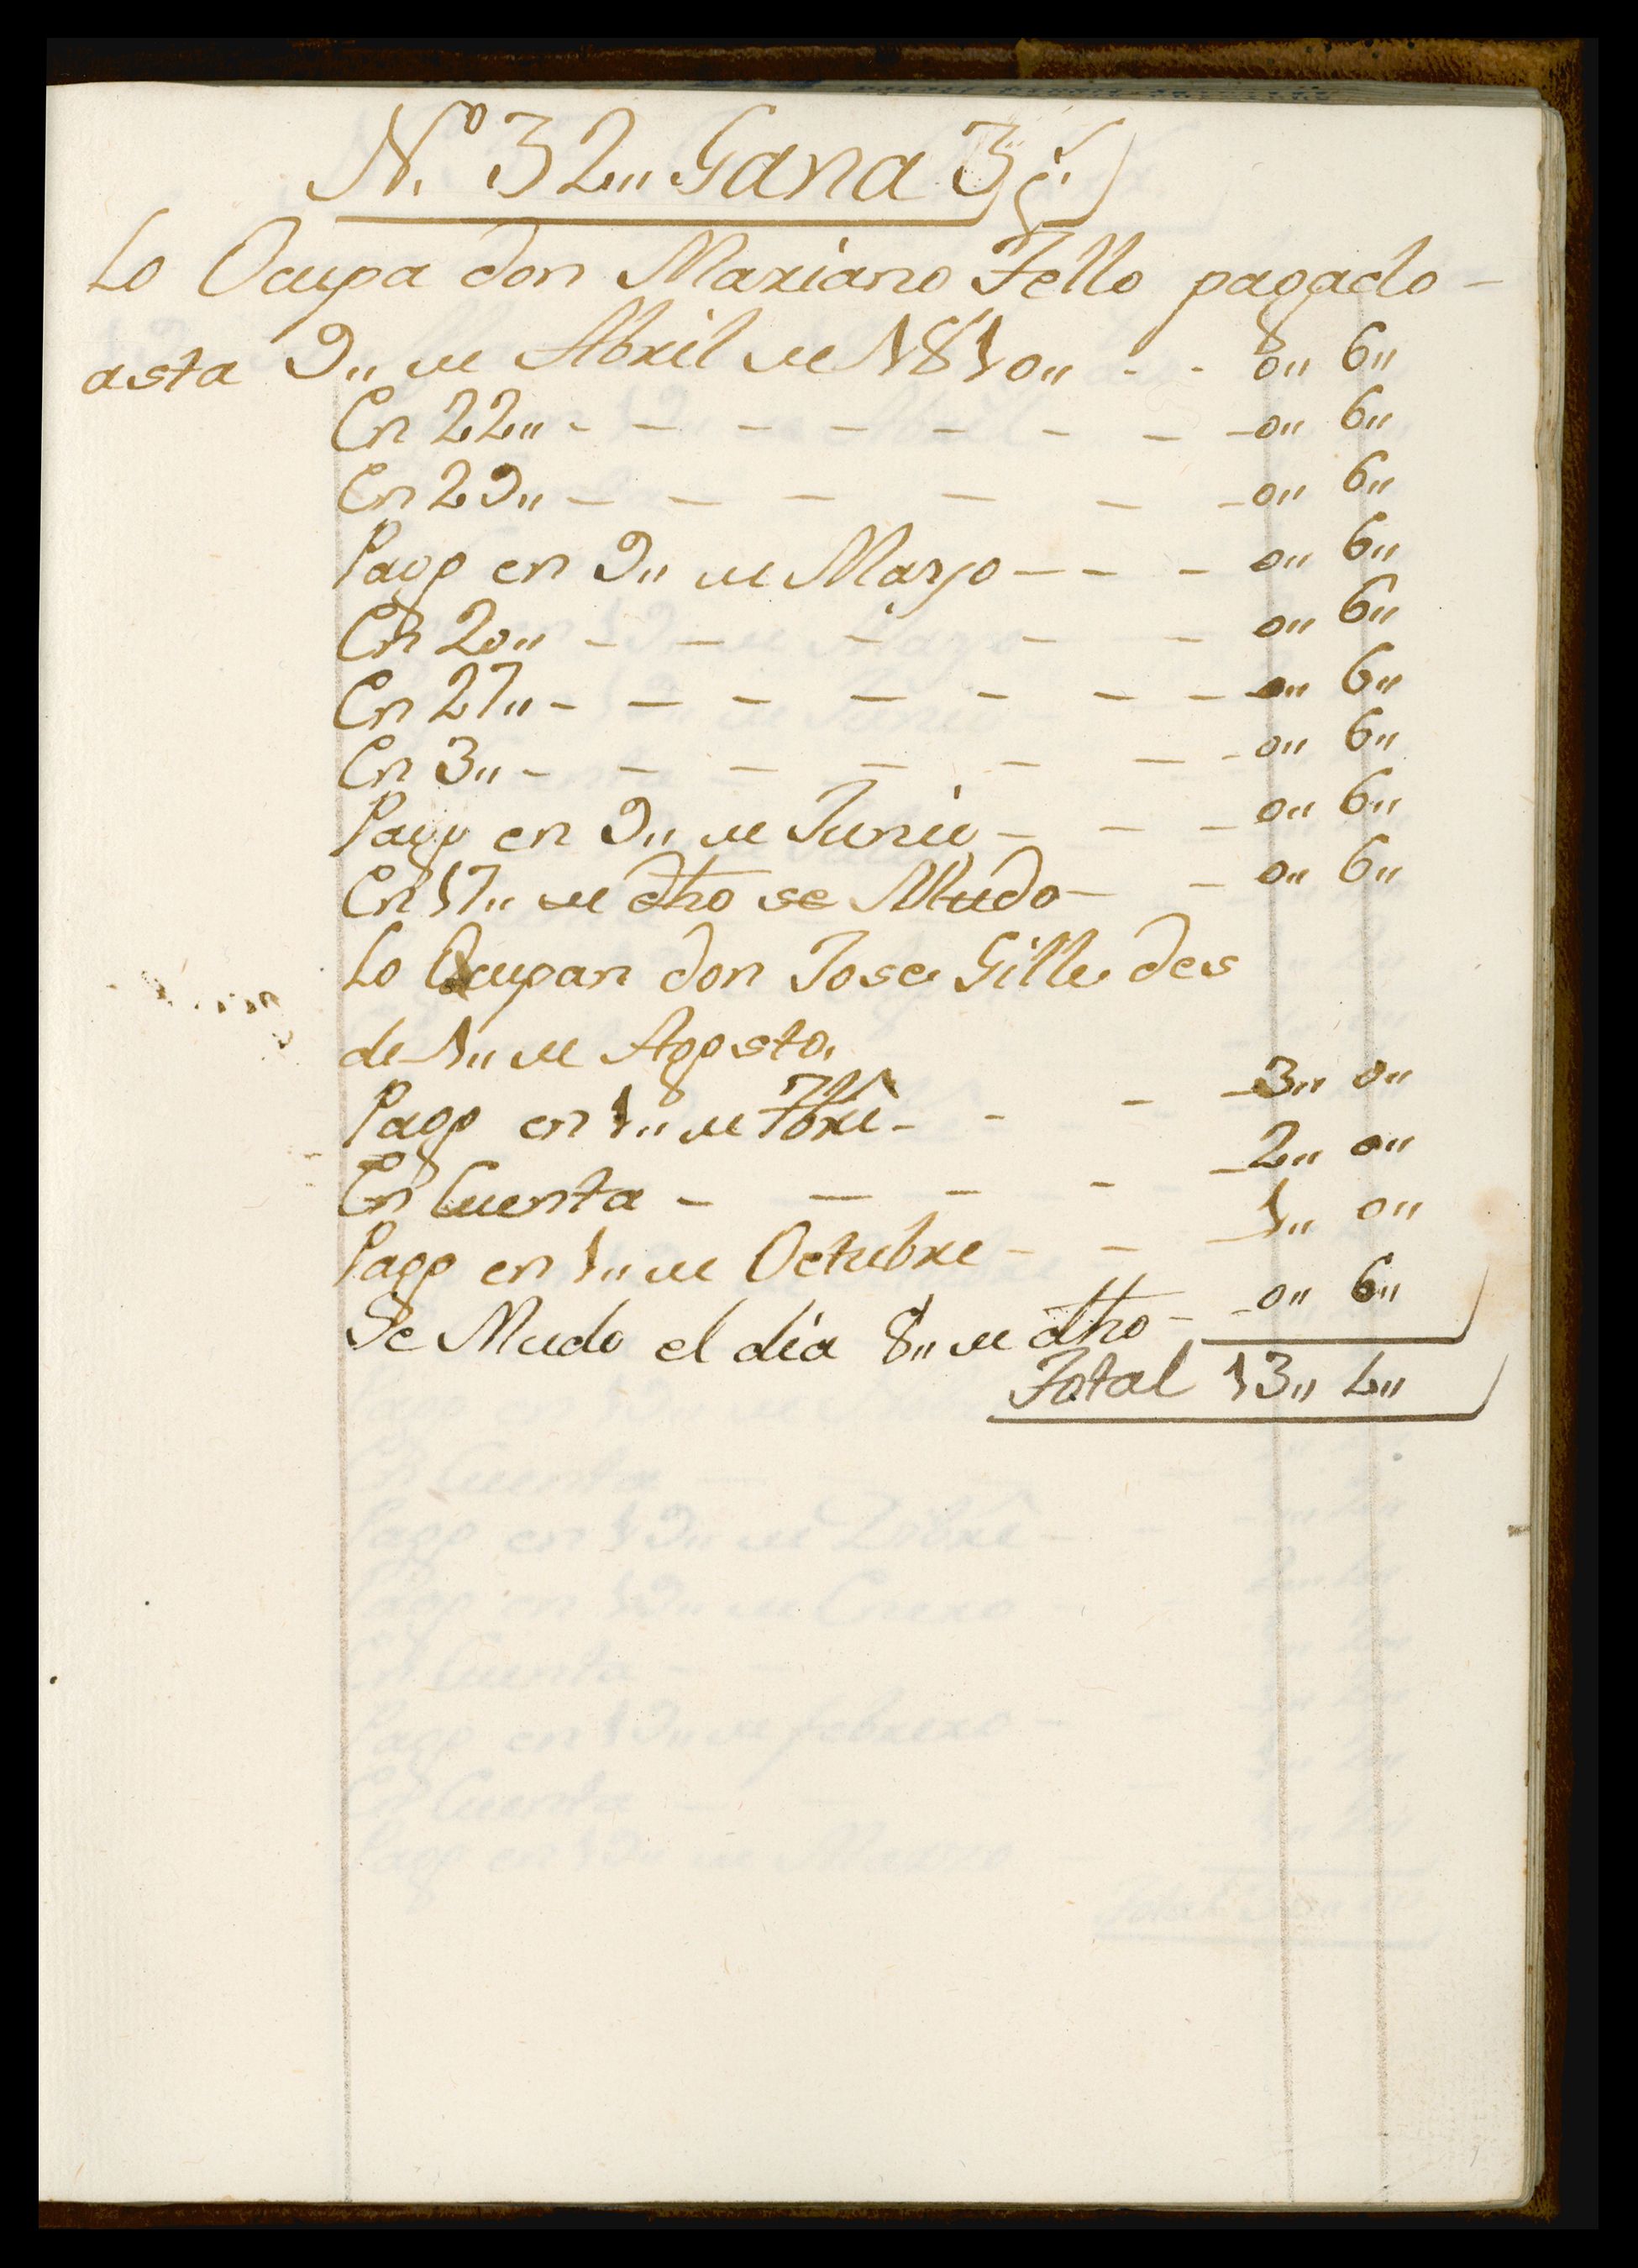 Nº 32,, Gana 3 p.s
Lo Ocupa don Mariano Tello pagado -
asta 9,, de Abril de 1810,, - - 0,, 6,,
En 22,, - - - - - - - 0,, 6,,
En 29,, - - - - - - 0,, 6,,
Pago en 9,, de Mayo - - - 0,, 6,,
En 20,, - - - - - 0,, 6,,
En 27,, - - - - - - - 0,, 6,,
En 3,, - - - - - - - 0,, 6,,
Pago en 9,, de Junio - - - 0,, 6,,
En 17,, de dho se Mudo - - 0,, 6,,
Lo Ocupan don Jose Gille des
de 1,, de Agosto.
Pago en 1,, de 7bre - - - - 3,, 0,,
En Cuenta - - - - - 2,, 0,,
Pago en 1,, de Octubre - - - 1,, 0,,
Se Mudo el dia 8,, de dho - - 0,, 6,,
Total 13,, 4,,